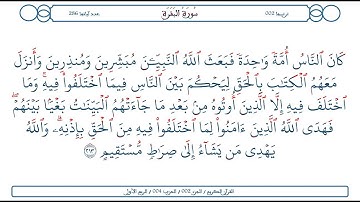 ترتيبها 002
سورة البقرة
عدد آياتها 286
كَانَ ٱلنَّاسُ أُمَّةً وَٰحِدَةً فَبَعَثَ ٱللَّهُ ٱلنَّبِيِّـۧنَ مُبَشِّرِينَ وَمُنذِرِينَ وَأَنزَلَ
مَعَهُمُ ٱلْكِتَٰبَ بِٱلْحَقِّ لِيَحْكُمَ بَيْنَ ٱلنَّاسِ فِيمَا ٱخْتَلَفُوا۟ فِيهِ ۚ وَمَا
ٱخْتَلَفَ فِيهِ إِلَّا ٱلَّذِينَ أُوتُوهُ مِنۢ بَعْدِ مَا جَآءَتْهُمُ ٱلْبَيِّنَٰتُ بَغْيًۢا بَيْنَهُمْ ۖ
فَهَدَى ٱللَّهُ ٱلَّذِينَ ءَامَنُوا۟ لِمَا ٱخْتَلَفُوا۟ فِيهِ مِنَ ٱلْحَقِّ بِإِذْنِهِۦ ۗ وَٱللَّهُ
يَهْدِى مَن يَشَآءُ إِلَىٰ صِرَٰطٍ مُّسْتَقِيمٍ ٢١٣
القرآن الكريم / الجزء 002 / الحزب 004 / الربع الأول